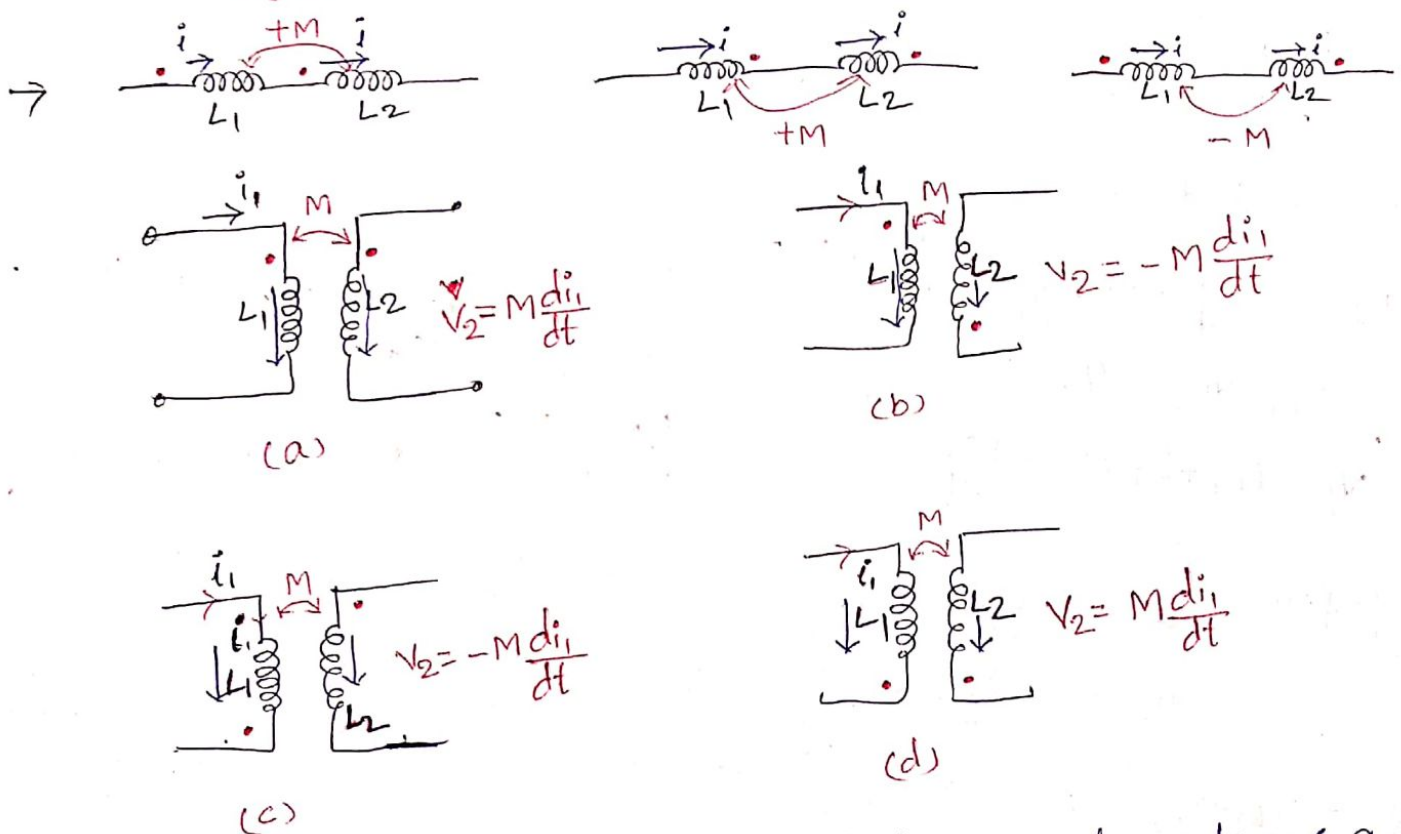 → i +M i
L1 L2
i i
L1 L2
+M
i i
L1 L2
-M
i1 M
L1 L2 V2 = M di1/dt
(a)
i1 M
L1 L2 V2 = -M di1/dt
(b)
i1 M
i1
L1 L2 V2 = -M di1/dt
(c)
M
i1
L1 L2 V2 = M di1/dt
(d)